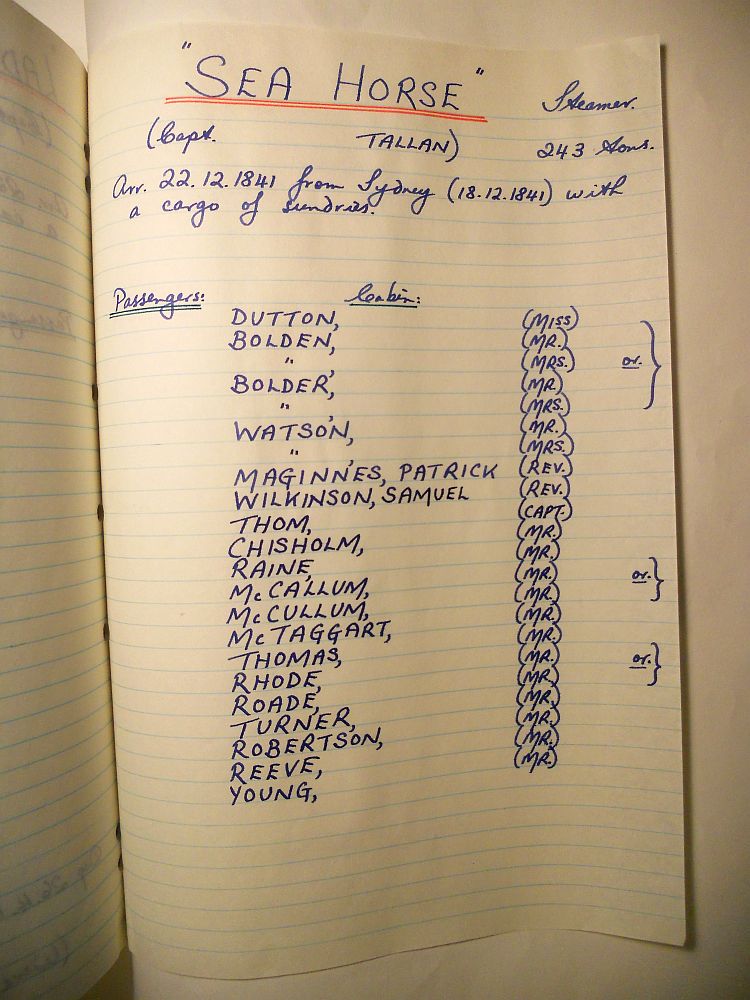 "SEA HORSE" Steamer.
(Capt. TALLAN) 243 Tons.
Arr. 22.12.1841 from Sydney (18.12.1841) with
a cargo of sundries.
Passengers: Cabin:
DUTTON, (MISS)
BOLDEN, (MR.)
" (MRS.) or.
BOLDER, (MR.)
" , (MRS.)
WATSON, (MR.)
" , (MRS.)
MAGINNES, PATRICK (REV.)
WILKINSON, SAMUEL (REV.)
THOM, (CAPT.)
CHISHOLM, (MR.)
RAINE, (MR.)
McCALLUM, (MR.) or.
McCULLUM, (MR.)
McTAGGART, (MR.)
THOMAS, (MR.)
RHODE, (MR.) or.
ROADE, (MR.)
TURNER, (MR.)
ROBERTSON, (MR.)
REEVE, (MR.)
YOUNG, (MR.)